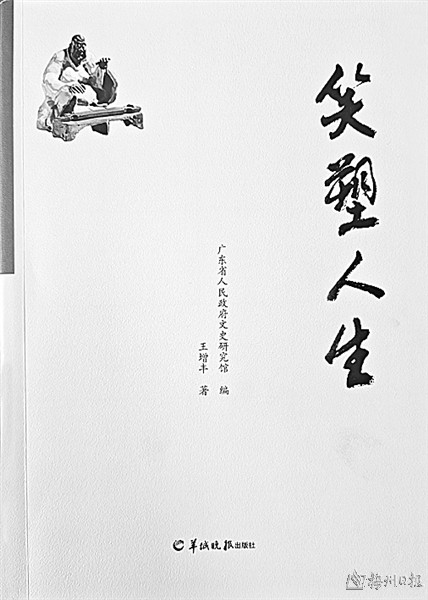 笑塑人生
广东省人民政府文史研究馆 编
王增丰 著
羊城晚报出版社
梅州日报